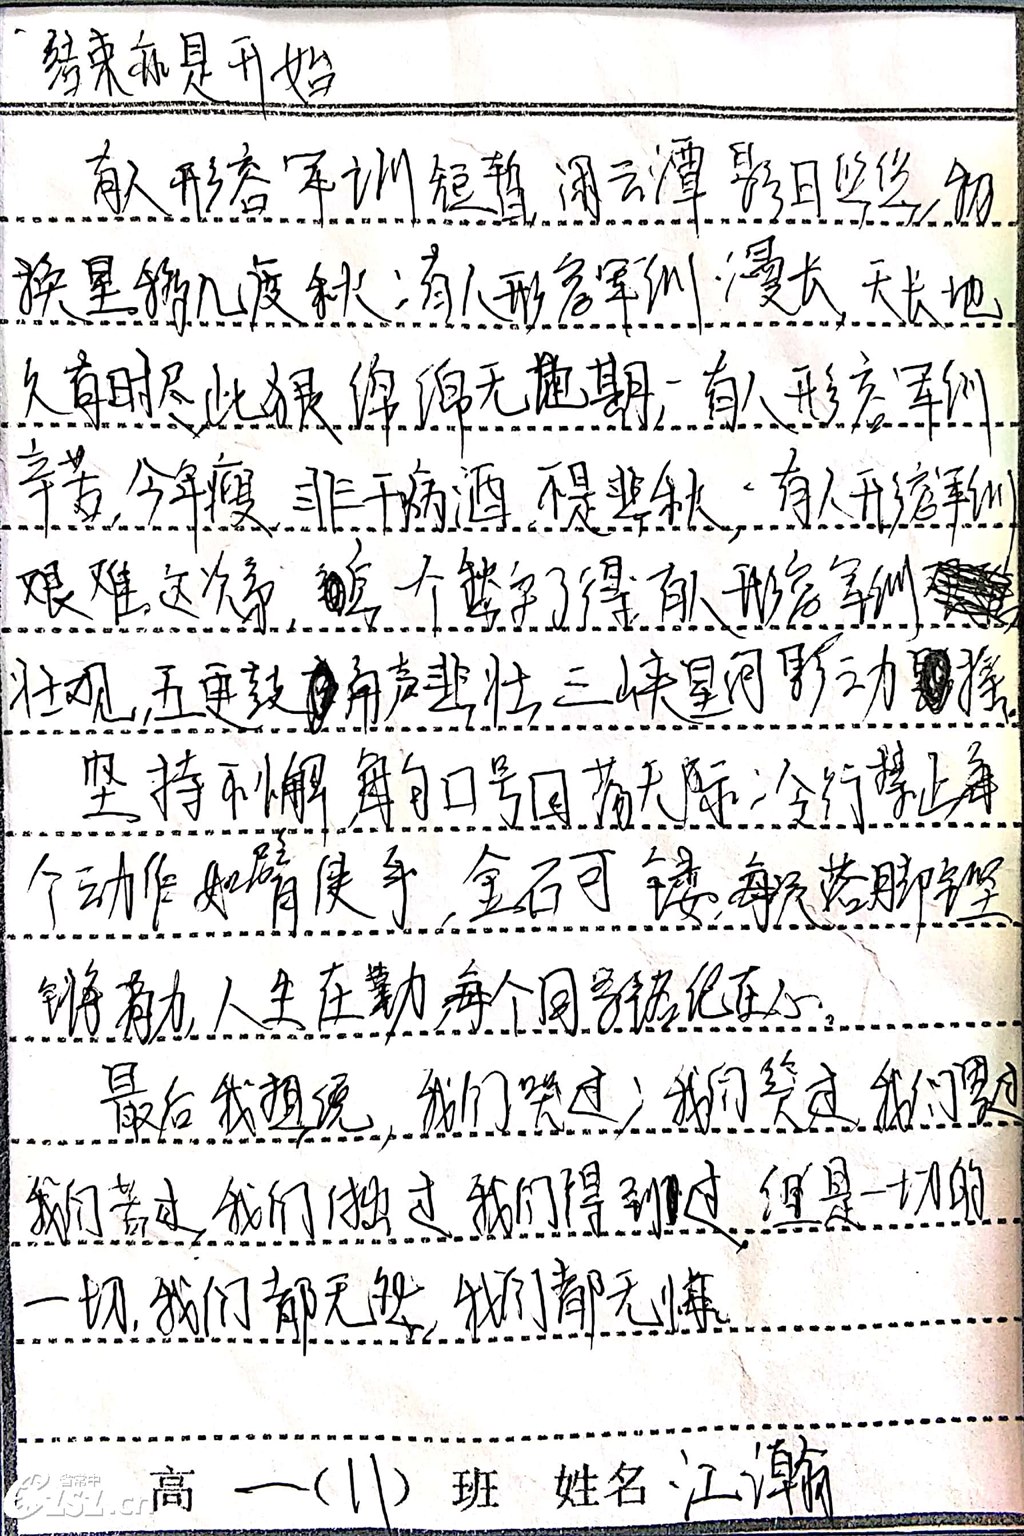 结束亦是开始
有人形容军训短暂,闲云潭影日悠悠,物
换星移几度秋;有人形容军训漫长,天长地
久有时尽,此恨绵绵无绝期;有人形容军训
辛苦,今年瘦,非干病酒,不是悲秋;有人形容军训
艰难,这次第,怎一个愁字了得;有人形容军训
壮观,五更鼓角声悲壮,三峡星河影动摇。
坚持不懈,每句口号回荡天际;令行禁止,每
个动作如臂使手,金石可镂,每次落脚铿
锵有力,人生在勤,每个同学铭记在心。
最后我想说,我们哭过,我们笑过,我们累过
我们苦过,我们拙过,我们得到过,但是一切的
一切,我们都无怨,我们都无悔。
高一(11)班 姓名 江瀚
省常中
LSZ.cn